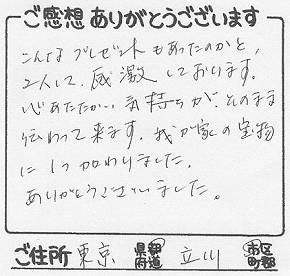 ご感想ありがとうございます
こんなプレゼントもあったのかと、
2人して、感激しております。
心あたたかい気持ちが、そのまま
伝わって来ます。我が家の宝物
に1つ加わりました。
ありがとうございました。
ご住所 東京 都道府県 立川 市区町郡